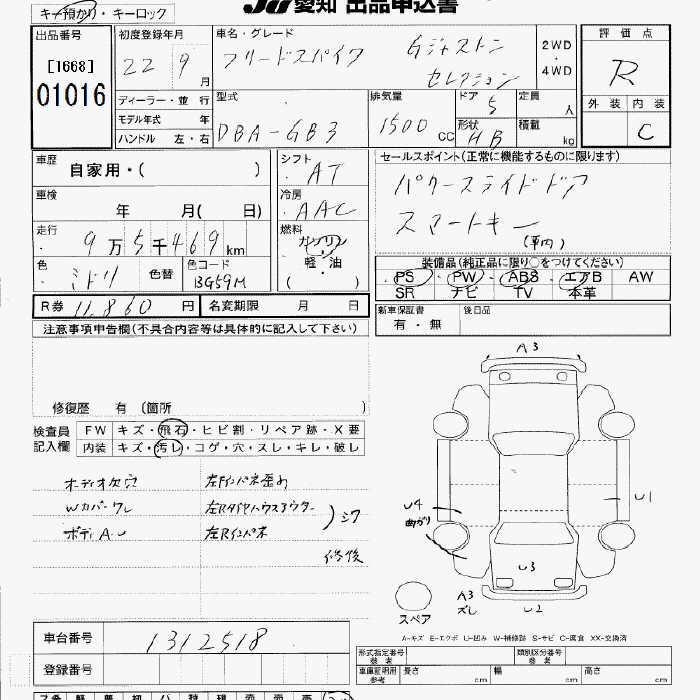 JU愛知 出品申込書
キー預かり・キーロック
出品番号
[1668]
01016
初度登録年月
22 9 月
ディーラー・並 行
モデル年式 年
ハンドル 左・右
車名・グレード
フリードスパイク Gジャストン
セレクション
2WD
・
4WD
型式
DBA-GB3
排気量
1500 CC
ドア
5
形状
HB
定員
人
積載
kg
評 価 点
R
外 装 内 装
C
車歴
自家用・( )
車検
年 月( 日)
走行
9万5千469km
色
ミドリ 色替
色コード
BG59M
シフト
AT
冷房
AAC
燃料
ガソリン
・
軽・油
( )
R券 11,860 円
名変期限 月 日
セールスポイント(正常に機能するものに限ります)
パワースライドドア
スマートキー
(車内)
装備品(純正品に限り○をつけてください)
PS PW ABS エアB AW
SR ナビ TV 本革
新車保証書
有・無
後日品
注意事項申告欄(不具合内容等は具体的に記入して下さい)
修復歴 有 (箇所 )
検査員
記入欄
FW キズ・飛石・ヒビ割・リペア跡・X要
内装 キズ・汚レ・コゲ・穴・スレ・キレ・破レ
オーディオ欠穴
Wカバーワレ
ボディAU
左Fインパネ歪み
左Rタイヤハウスアウター
左Rインパネ
シワ
修後
A3
U4
曲がり
U1
U3
A3
ズレ
U2
スペア
A-キズ E-エクボ U-凹み W-補修跡 S-サビ C-腐食 XX-交換済
車台番号 1312518
登録番号
形式指定番号
参考
類別区分番号
参考
車庫証明用
参考
長さ cm
幅 cm
高さ cm